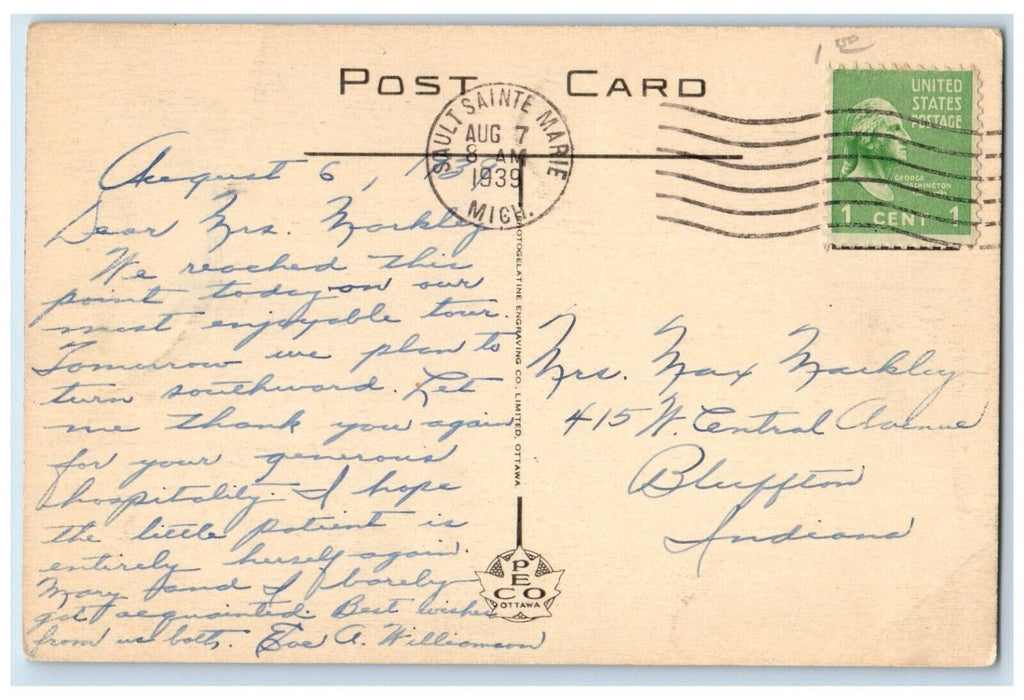 1 00
POST CARD
UNITED
STATES
POSTAGE
GEORGE
WASHINGTON
1 CENT 1
SAULT SAINTE MARIE
AUG 7
8 AM
1939
MICH.
August 6, 1939
Dear Mrs. Markley
We reached this
point today on our
most enjoyable tour.
Tomorrow we plan to
turn southward. Let
me thank you again
for your generous
hospitality. I hope
the little patient is
entirely herself again.
Mary and I barely
got acquainted. Best wishes
from us both. A. Williamson
PHOTOGELATINE ENGRAVING CO., LIMITED, OTTAWA
PECO
OTTAWA
Mrs. Max Markley
415 W. Central Avenue
Bluffton
Indiana